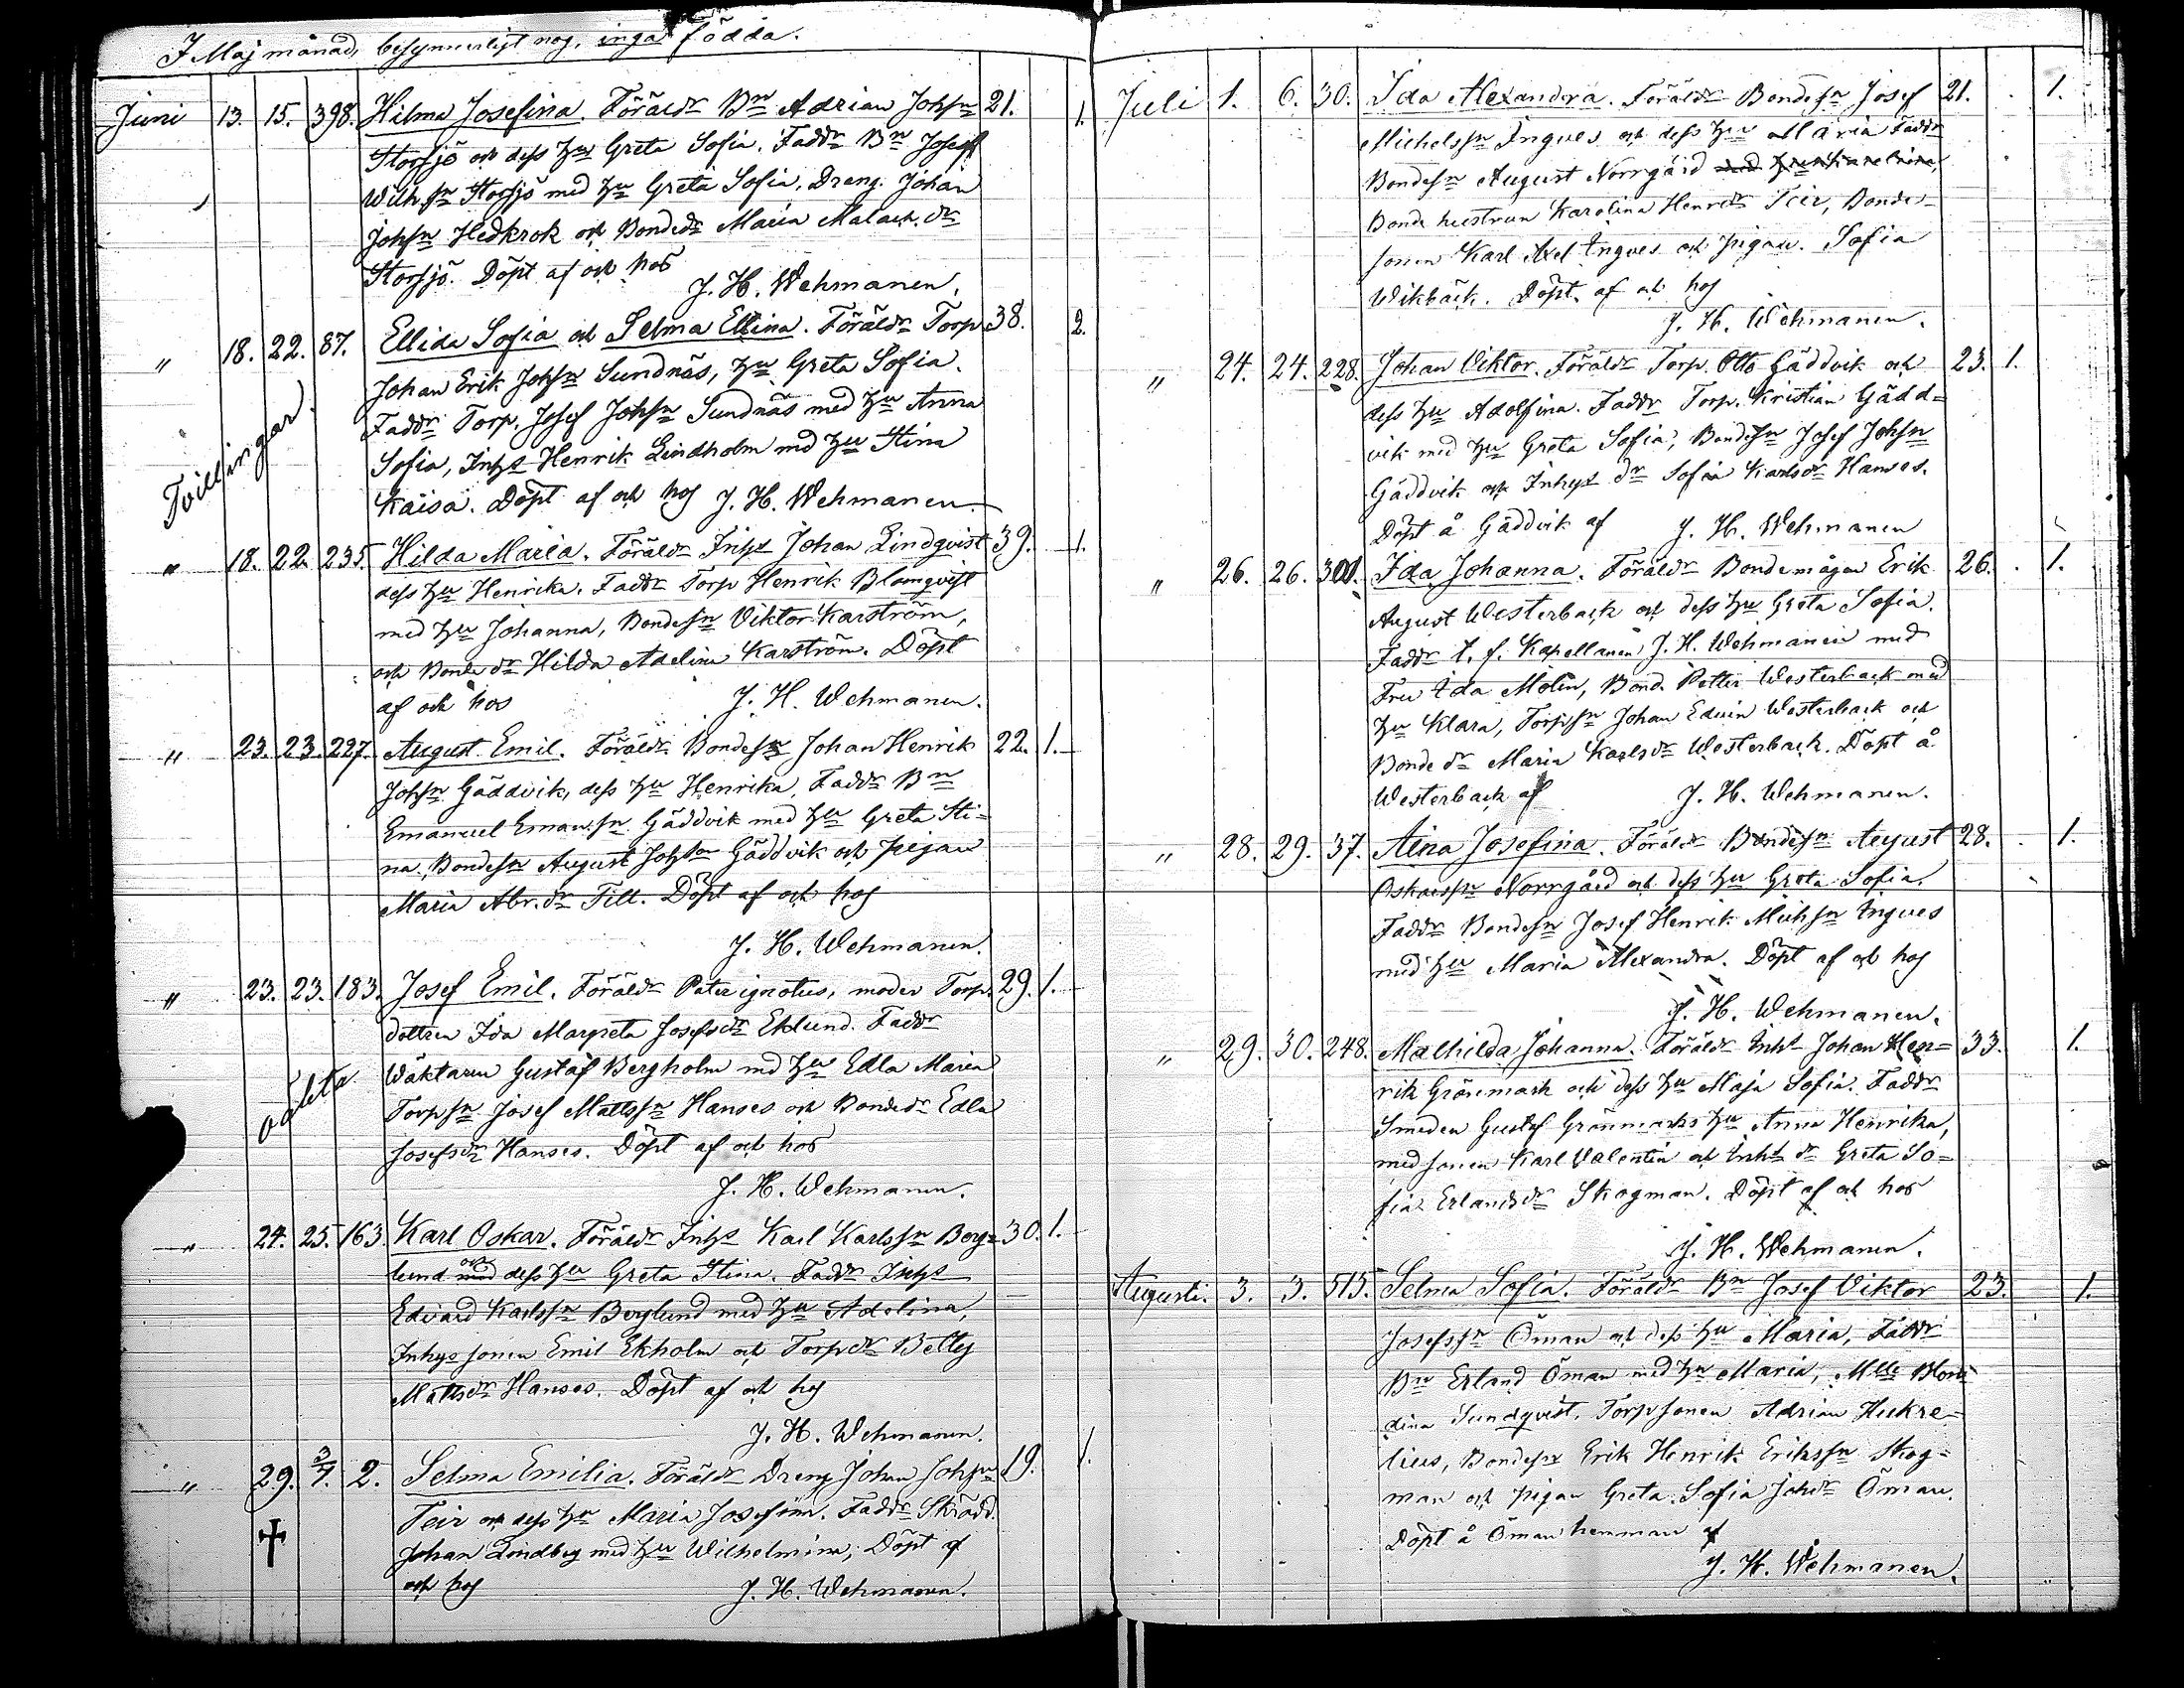 I Maj månad, besynnerligt nog, inga födda.
Juni 13. 15. 398. Hilma Josefina. Föräldr Bn Adrian Johsn 21. 1.
Storsjö och dess hu Greta Sofia. Faddr Bn Josef
Wilh.sn Storsjö med hu Greta Sofia, Dreng. Johan
Johsn Hedkrok och Bondedr Maria Malach.dr
Storsjö. Döpt af och hos
J. H. Wehmanen.
" 18. 22. 87. Ellida Sofia och Selma Ellina. Föräldr Torp. 38. 2.
Johan Erik Johsn Sundnäs, hu Greta Sofia.
Faddr Torp. Josef Johsn Sundnäs med hu Anna
Sofia, Inhys Henrik Lindholm med hu Stina
Kaisa. Döpt af och hos J. H. Wehmanen
Tvillingar.
" 18. 22. 235. Hilda Maria. Föräldr Inhys Johan Lindqvist 39. 1.
dess hu Henrika. Faddr Torp Henrik Blomqvist
med hu Johanna, Bondesn Viktor Karström,
och Bonde dr Hilda Adelina Karström. Döpt
af och hos J. H. Wehmanen.
" 23. 23. 227. August Emil. Föräldr Bondesn Johan Henrik 22. 1.
Johsn Gäddvik, dess hu Henrika, Faddr Bn
Emanuel Eman.sn Gäddvik med hu Greta Sti=
na, Bondesn August Johsson Gäddvik och pigan
Maria Abr.dr Till. Döpt af och hos
J. H. Wehmanen.
" 23. 23. 183. Josef Emil. Föräldr Pater ignotus, moder Torp. 29. 1.
dottren Ida Margreta Josefsdr Eklund. Faddr
Wäktaren Gustaf Bergholm med hu Edla Maria
Torpsn Josef Mattssn Hanses och Bondedr Edla
Josefsdr Hanses. Döpt af och hos
J. H. Wehmanen.
oäkta
" 24. 25. 163. Karl Oskar. Föräldr Inhys Karl Karlssn Berg= 30. 1.
lund och dess hu Greta Stina. Faddr Inhys
Edvard Karlssn Berglund med hu Adolina,
Inhys sonen Emil Ekholm och Torpdr Betty
Mattsdr Hanses. Döpt af och hos
J. H. Wehmanen.
" 29. 3/7. 2. Selma Emilia. Föräldr Dreng Johan Johsn 19. 1.
Teir och dess hu Maria Josefina. Faddr Skrädd.
Johan Lindberg med hu Wilhelmina, Döpt af
och hos J. H. Wehmanen.
Juli 1. 6. 30. Ida Alexandra. Föräldr Bondesn Josef 21. 1.
Michelssn Ingves och dess hu Maria Faddr
Bondesn August Norrgård
Bonde hustrun Karolina Henr.dr Teir, Bonde-
sonen Karl Axel Ingves och pigan Sofia
Wikbäck. Döpt af och hos
J. H. Wehmanen.
" 24. 24. 228. Johan Viktor. Föräldr Torp. Otto Gäddvik och 23. 1.
dess hu Adolfina. Faddr Torp. Kristian Gädd=
vik med hu Greta Sofia, Bondesn Josef Johsn
Gäddvik och Inhys dr Sofia Karlsdr Hanses.
Döpt å Gäddvik af J. H. Wehmanen
" 26. 26. 301. Ida Johanna. Föräldr Bondemågen Erik 26. 1.
August Westerback och dess hu Greta Sofia.
Faddr t. f. Kapellanen J. H. Wehmanen med
Fru Ida Molin, Bond. Petter Westerback med
hu Klara, Torpsn Johan Edvin Westerback och
Bonde dr Maria Karlsdr Westerback. Döpt å
Westerback af J. H. Wehmanen.
" 28. 29. 37. Aina Josefina. Föräldr Bondesn August 28. 1.
Oskarssn Norrgård och dess hu Greta Sofia.
Faddr Bondesn Josef Henrik Michsn Ingves
med hu Maria Alexandra. Döpt af och hos
J. H. Wehmanen.
" 29. 30. 248. Mathilda Johanna. Föräldr Inhs Johan Hen= 33. 1.
rik Grönmark och dess hu Maja Sofia. Faddr
Smeden Gustaf Grönmarks hu Anna Henrika,
med sonen Karl Valentin och Inhs dr Greta So=
fia Erlandsdr Skogman. Döpt af och hos
J. H. Wehmanen.
Augusti. 3. 3. 515. Selma Sofia. Föräldr Bn Josef Viktor 23. 1.
Josefssn Öman och dess hu Maria, Faddr
Bn Erland Öman med hu Maria, Mlle Blon
dina Sundqvist, Torpsonen Adrian Hukre=
lius, Bondesn Erik Henrik Erikssn Skog=
man och pigan Greta Sofia Johdr Öman.
Döpt å Öman hemman af
J. H. Wehmanen.